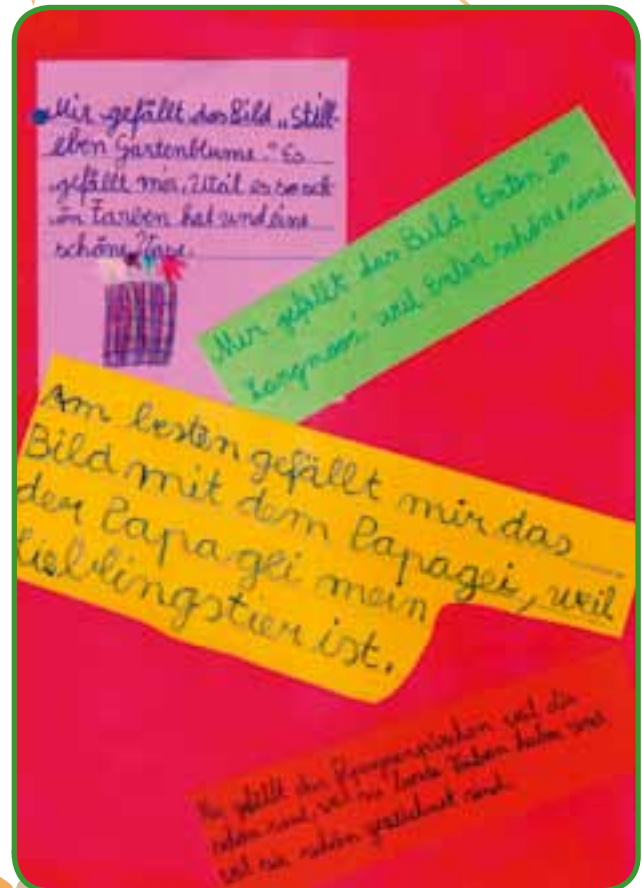 Mir gefällt das Bild „Still-
eben Gartenblume." Es
gefällt mir, weil es so sch
ön Farben hat und eine
schöne Vase.
Mir gefällt das Bild „Enten in
weil Enten schöne sind.
Am besten gefällt mir das
Bild mit dem Papagei, weil
der Papagei mein
Lieblingstier ist.
gefällt weil die
schön sind, weil sie bunte Farben habe und
weil sie schön gezeichnet sind.